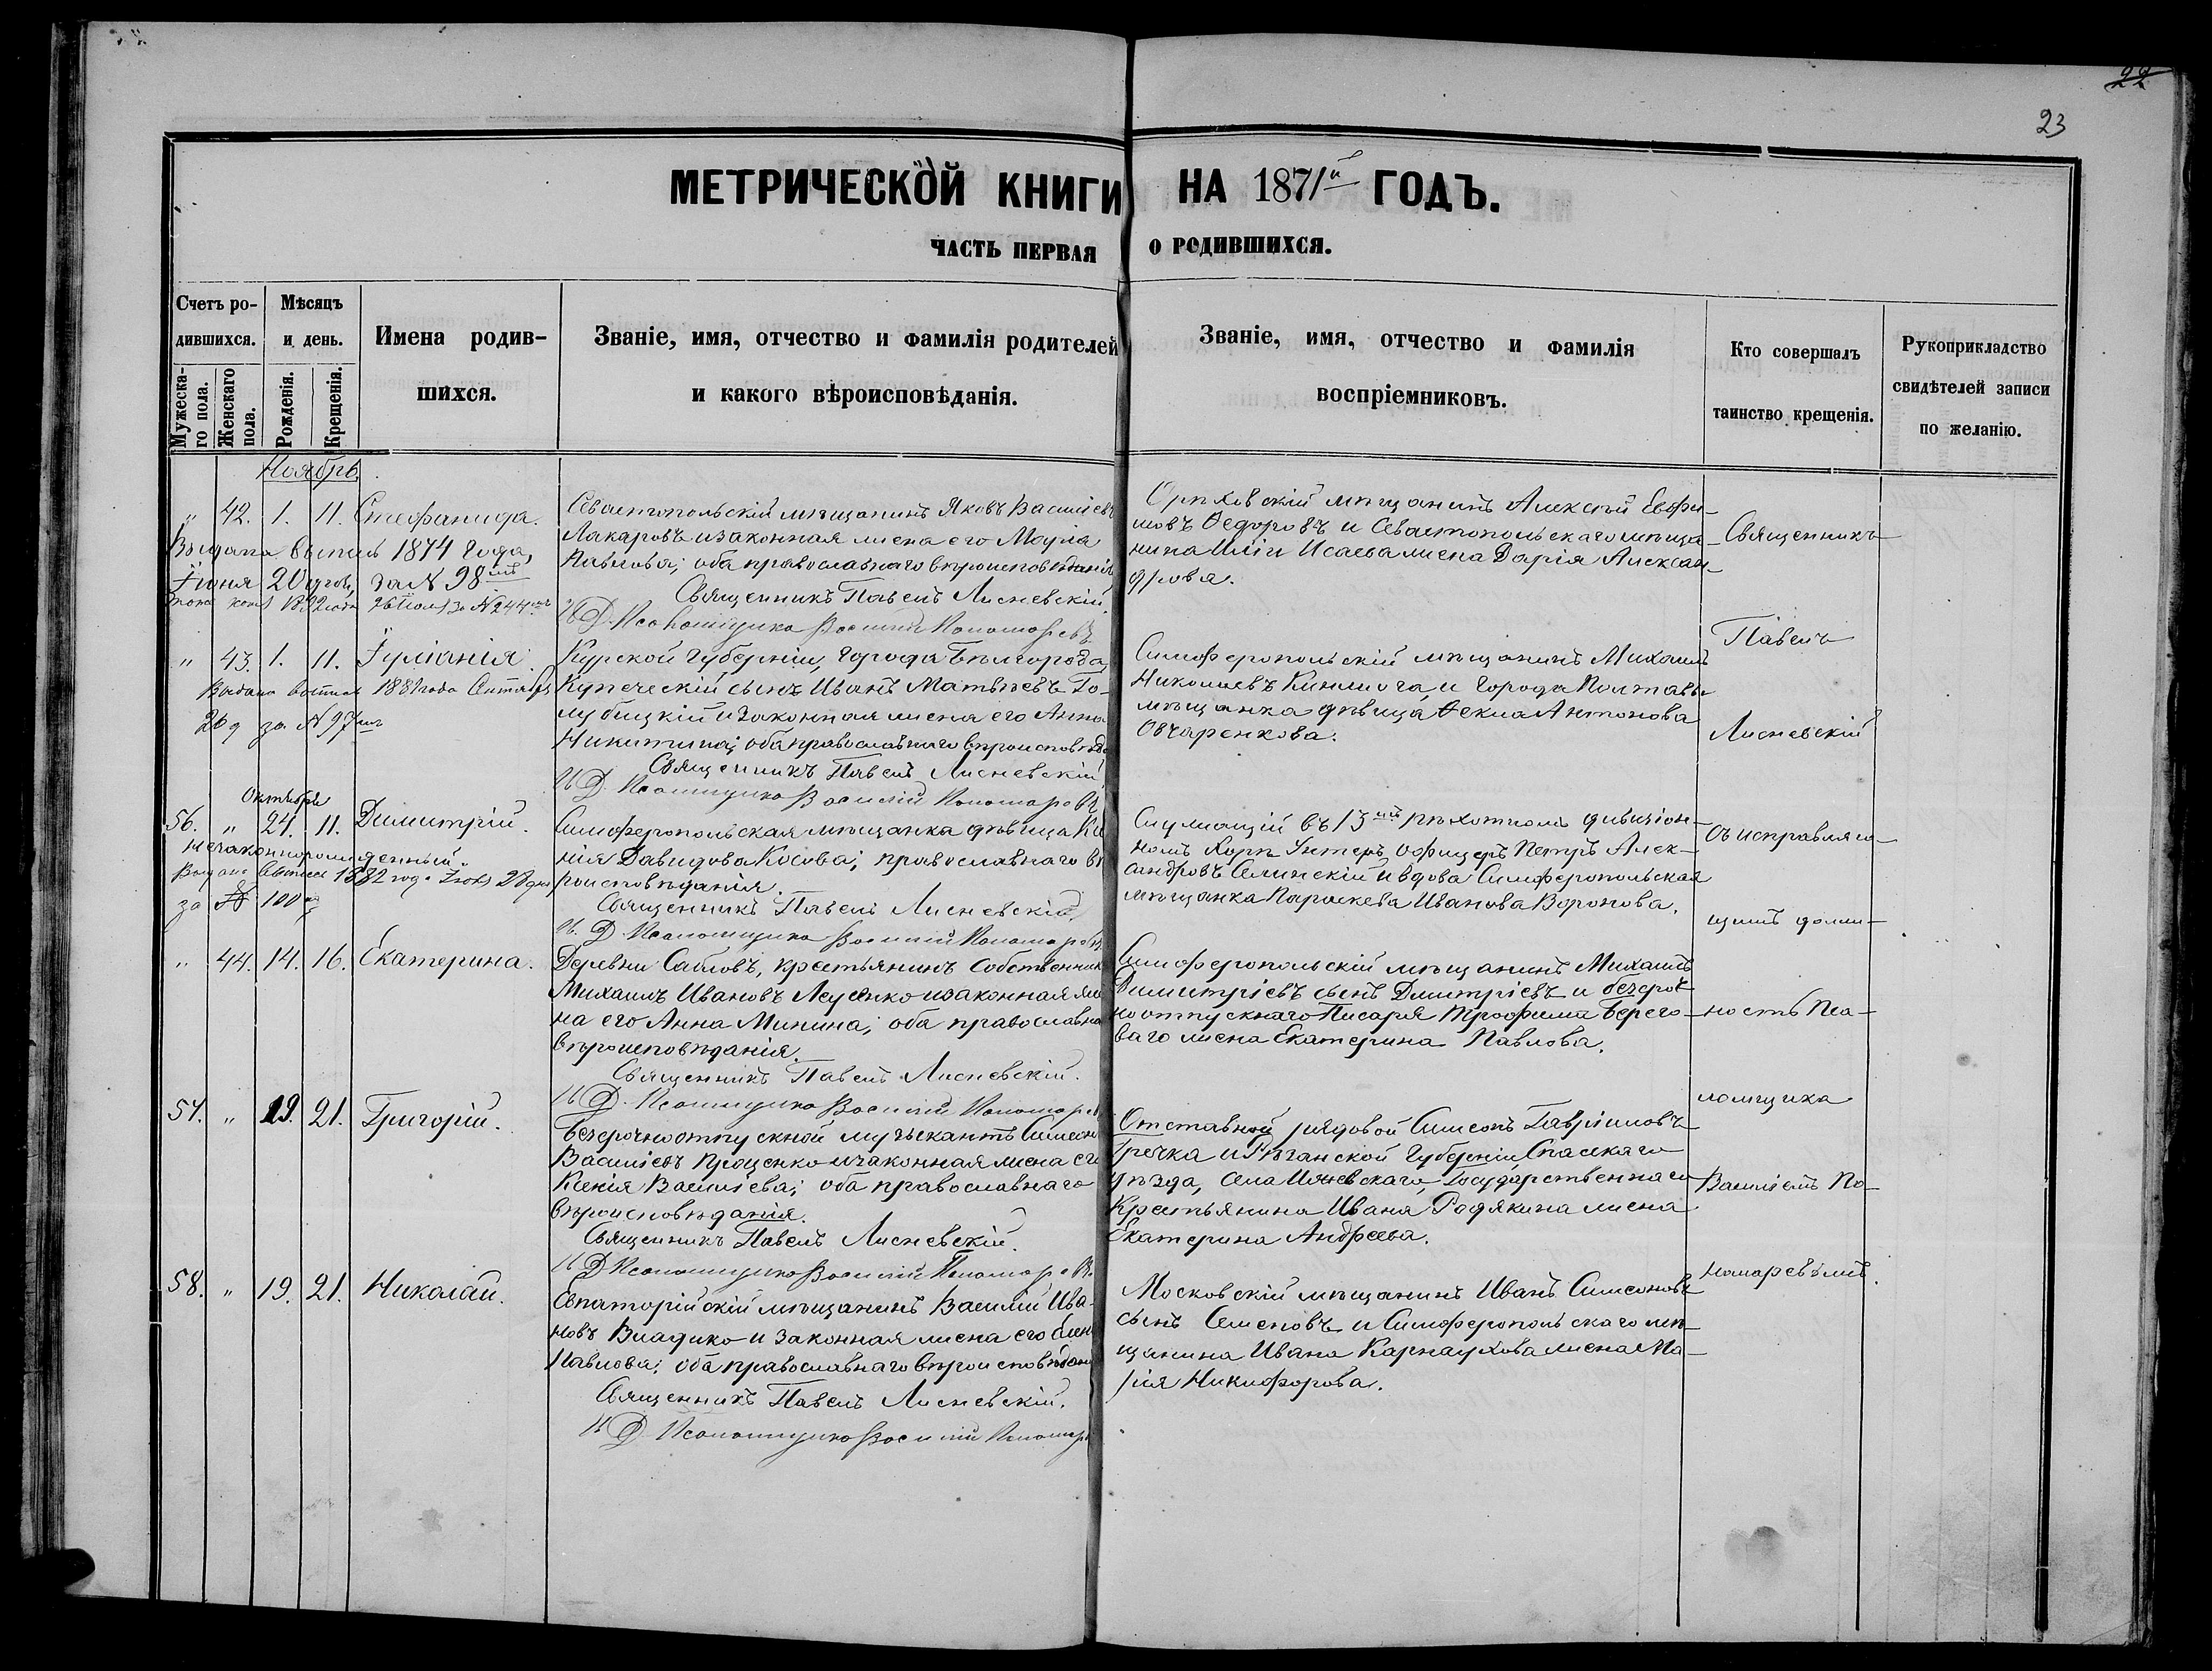 22
23
МЕТРИЧЕСКОЙ КНИГИ НА 1871й ГОДЪ.
ЧАСТЬ ПЕРВАЯ О РОДИВШИХСЯ.
Счетъ ро-
дившихся.
Мужеска-
го пола.
Женскаго
пола.
Мѣсяцъ
и день.
Рожденія.
Крещенія.
Имена родив-
шихся.
Званіе, имя, отчество и фамилія родителей
и какого вѣроисповѣданія.
Званіе, имя, отчество и фамилія
воспріемниковъ.
Кто совершалъ
таинство крещенія.
Рукоприкладство
свидѣтелей записи
по желанію.
Ноябрь.
" 42. 1. 11. Стефанида.
Выдана выпись 1874 года,
Іюня 20 дня, за № 98мъ
26 Іюля за № 244мъ
Севастопольскій мѣщанинъ Яковъ Васильевъ
Лакаровъ и законная жена его Марія
Павлова; оба православнаго вѣроисповѣданія
Священникъ Павелъ Лисневскій.
И Д. Псаломщика Василій Пономаревъ
Орѣховскій мѣщанинъ Алексѣй Евфи-
мовъ Федоровъ и Севастопольскаго мѣща-
нина Иліи Исаева жена Дарія Алексан-
дрова.
" 43. 1. 11. Іуліанія.
Выдана выпись 1881 года Сентября
26 д за № 97мъ
Курской Губерніи, города Бѣлгорода,
Купеческій сынъ Иванъ Матвѣевъ Го-
лубицкій и законная жена его Анна
Никитина; оба православнаго вѣроисповѣд
Священникъ Павелъ Лисневскій
И Д. Псаломщика Василій Пономаревъ
Симферопольскій мѣщанинъ Михаилъ
Николаевъ и города Полтавы
мѣщанка дѣвица Ѳекла Антонова
Овчаренкова.
Октября
56. " 24. 11. Димитрій.
Незаконнорожденный.
Выдана выпись 1882 года Іюля 28 дня
за № 100
Симферопольская мѣщанка дѣвица Ки
нія Давидова Косова; православнаго вѣ
роисповѣданія.
Священникъ Павелъ Лисневскій.
И. Д. Псаломщика Василій Пономаревъ
Служащій въ 13мъ пѣхотномъ дивизіон-
номъ Унтеръ офицеръ Петръ Алек-
андровъ Селинскій и вдова Симферопольская
мѣщанка Параскева Иванова Воронова.
" 44. 14. 16. Екатерина.
Деревни Сабловъ, крестьянинъ собственник
Михаилъ Ивановъ и законная же
на его Анна Минина; оба православна
вѣроисповѣданія.
Священникъ Павелъ Лисневскій.
И Д. Псаломщика Василій Пономарев
Симферопольскій мѣщанинъ Михаилъ
Димитріевъ сынъ Дмитріевъ и безсроч
ноотпускнаго Писаря Трофима Берего-
ваго жена Екатерина Павлова.
57. " 19. 21. Григорій.
Безсрочноотпускной музыкантъ Симеонъ
Васильевъ Проценко и законная жена его
Ксенія Васильева; оба православнаго
вѣроисповѣданія.
Священникъ Павелъ Лисневскій.
И Д Псаломщика Василій Пономарев.
Отставной рядовой Симеонъ Гавриловъ
Гречка и Рязанской Губерніи Спасскаго
уѣзда, Села Ижевскаго, Государственнаго
Крестьянина Ивана Родякина жена
Екатерина Андреева.
58. " 19. 21. Николай.
Евпаторійскій мѣщанинъ Василій Ива-
новъ Владико и законная жена его Елен
Павлова; оба православнаго вѣроисповѣдан
Священникъ Павелъ Лисневскій.
И Д. Псаломщика Василій Пономар
Московскій мѣщанинъ Иванъ Симеоновъ
сынъ Семеновъ и Симферопольскаго мѣ-
щанина Ивана Карнаухова жена Ма-
рія Никифорова.
Священникъ
Павелъ
Лисневскій
съ исправляю-
щимъ долж-
ность Пса-
ломщика
Василіемъ По-
номаревымъ.